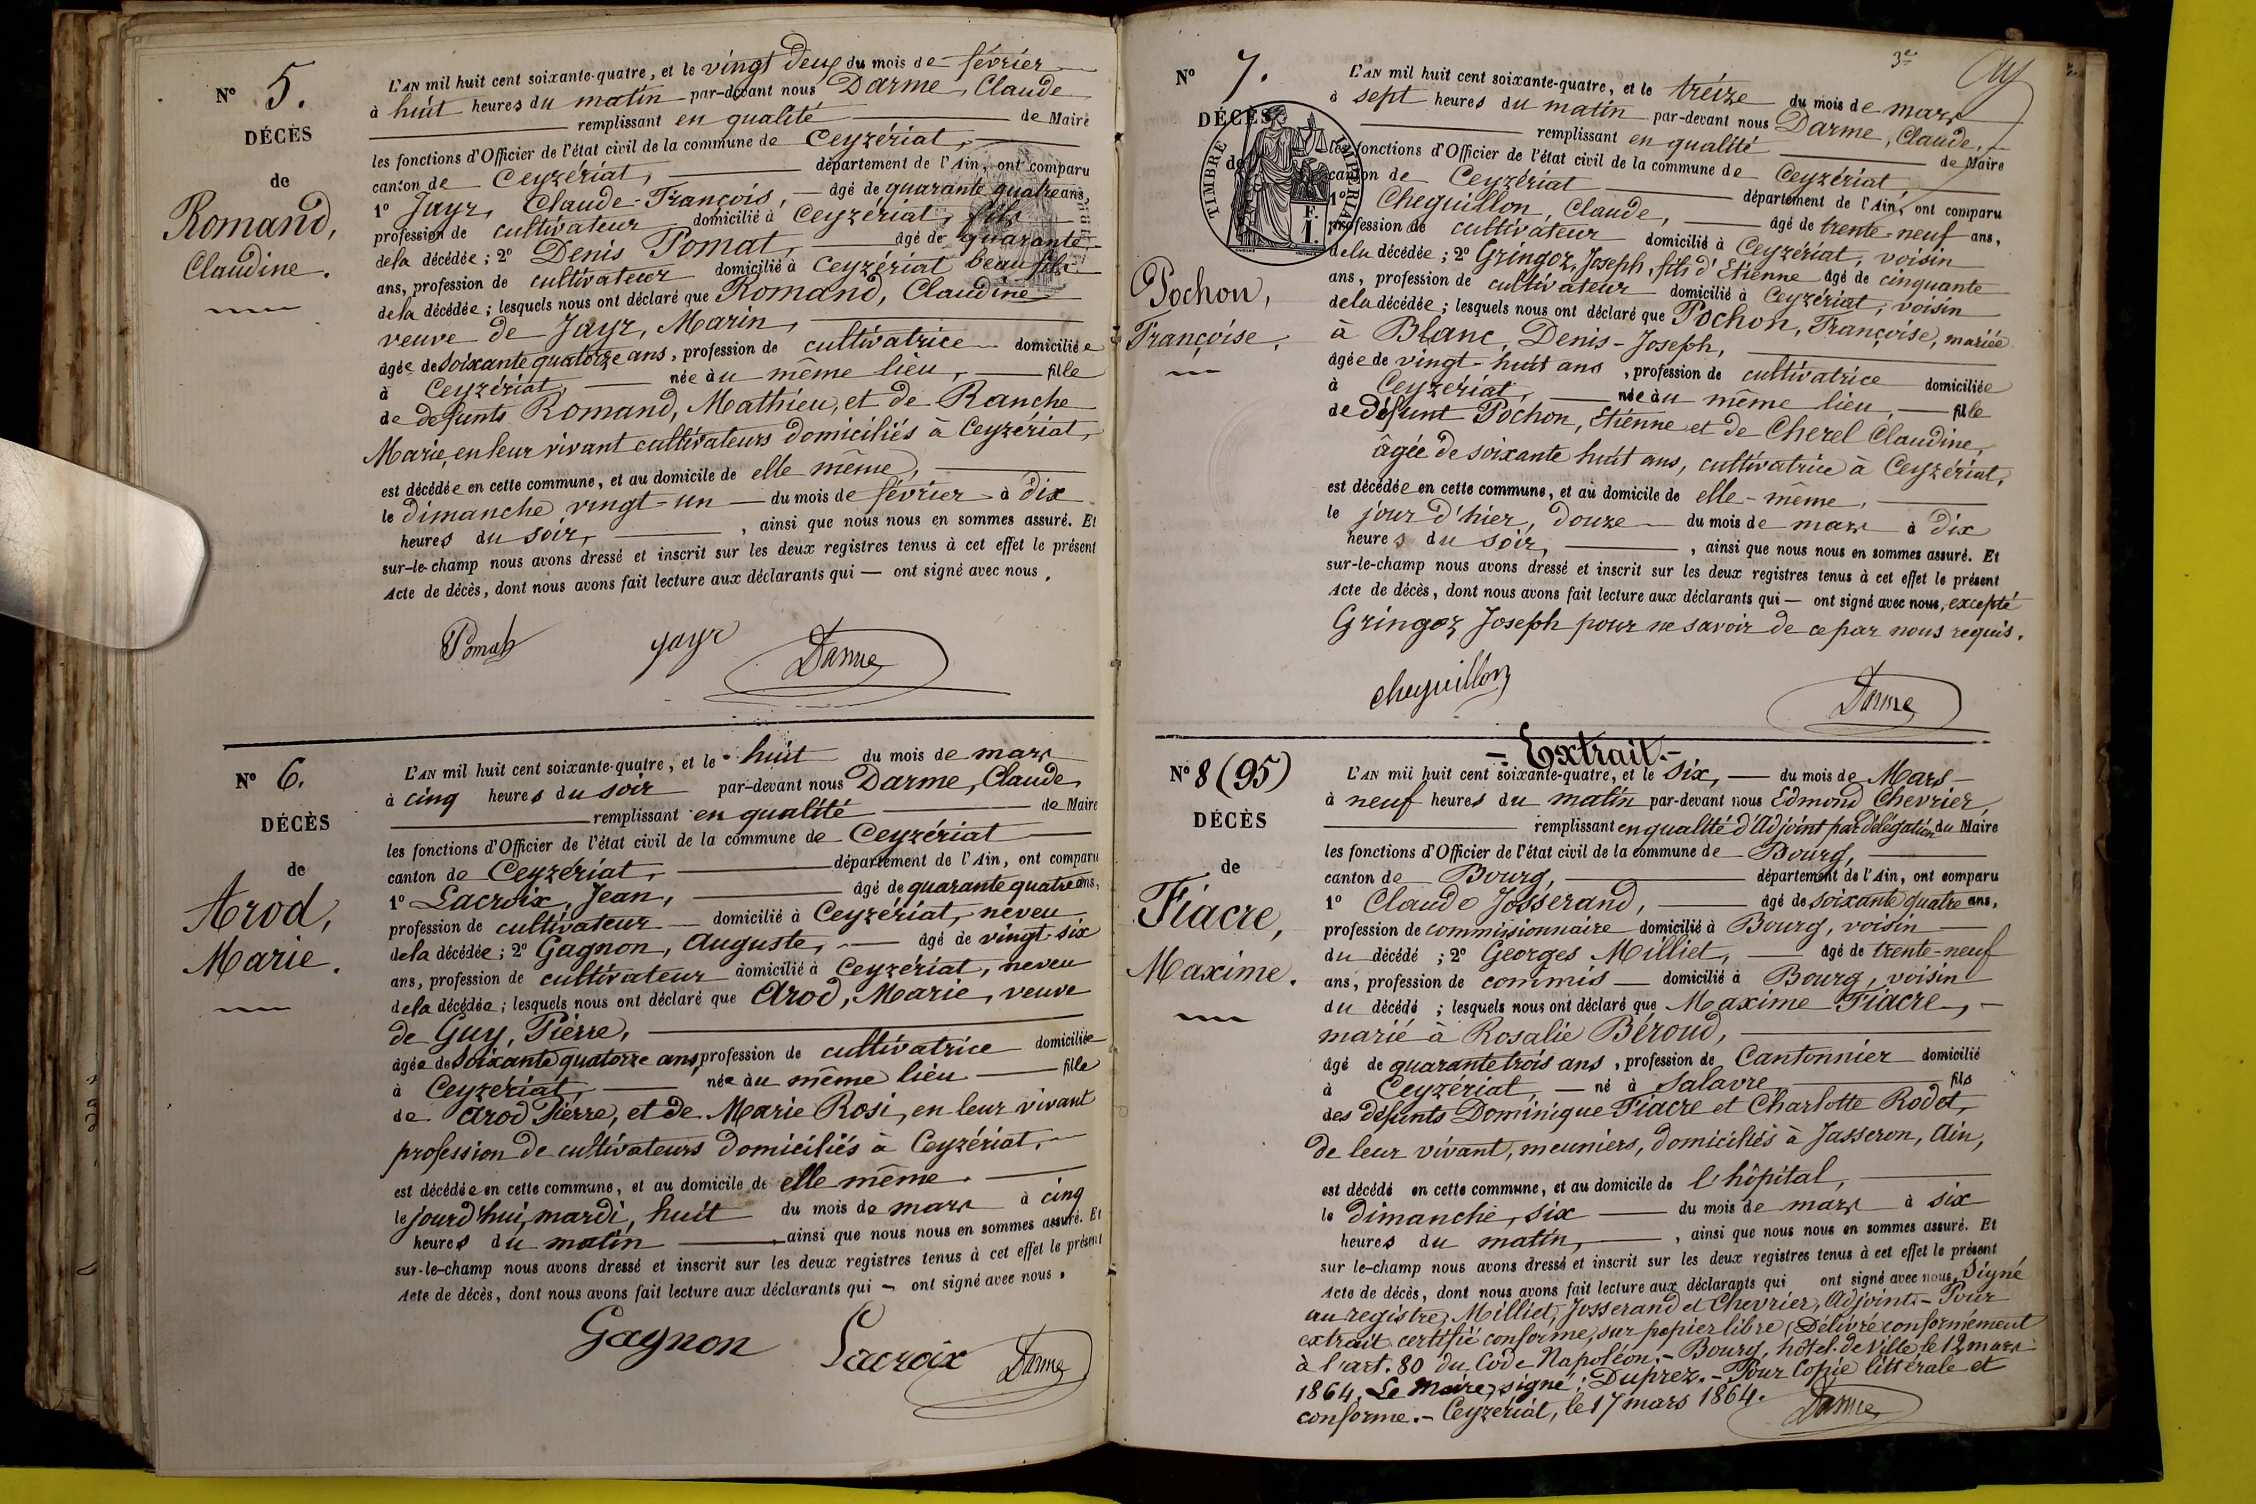 N° 5.
DÉCÈS
de
Romand,
Claudine.
L'AN mil huit cent soixante-quatre, et le vingt deux du mois de février
à huit heures du matin par-devant nous Darme, Claude
remplissant en qualité de Maire
les fonctions d'Officier de l'état civil de la commune de Ceyzériat,
canton de Ceyzériat, département de l'Ain, ont comparu
1° Jayr, Claude-François, âgé de quarante quatre ans,
profession de cultivateur domicilié à Ceyzériat, fils
de la décédée; 2° Denis Pomat, âgé de quarante
ans, profession de cultivateur domicilié à Ceyzériat beau fils
de la décédée; lesquels nous ont déclaré que Romand, Claudine
veuve de Jayr, Marin,
âgée de soixante quatorze ans, profession de cultivatrice domiciliée
à Ceyzériat, née au même lieu, fille
de défunts Romand, Mathieu, et de Ranche
Marie, en leur vivant cultivateurs domiciliés à Ceyzériat,
est décédée en cette commune, et au domicile de elle même,
le dimanche vingt-un du mois de février à dix
heures du soir, , ainsi que nous nous en sommes assuré. Et
sur-le-champ nous avons dressé et inscrit sur les deux registres tenus à cet effet le présent
Acte de décès, dont nous avons fait lecture aux déclarants qui — ont signé avec nous.
Pomat Jayr Darme
N° 6.
DÉCÈS
de
Arod,
Marie.
L'AN mil huit cent soixante-quatre, et le huit du mois de mars
à cinq heures du soir par-devant nous Darme, Claude,
remplissant en qualité de Maire
les fonctions d'Officier de l'état civil de la commune de Ceyzériat
canton de Ceyzériat, département de l'Ain, ont comparu
1° Lacroix, Jean, âgé de quarante quatre ans,
profession de cultivateur domicilié à Ceyzériat, neveu
de la décédée; 2° Gagnon, Auguste, âgé de vingt-six
ans, profession de cultivateur domicilié à Ceyzériat, neveu
de la décédée; lesquels nous ont déclaré que Arod, Marie, veuve
de Guy, Pierre,
âgée de soixante quatorze ans, profession de cultivatrice domiciliée
à Ceyzériat, née au même lieu fille
de Arod Pierre, et de Marie Rosi, en leur vivant
profession de cultivateurs domiciliés à Ceyzériat,
est décédée en cette commune, et au domicile de elle même.
le jourd'hui, mardi, huit du mois de mars à cinq
heures du matin , ainsi que nous nous en sommes assuré. Et
sur-le-champ nous avons dressé et inscrit sur les deux registres tenus à cet effet le présent
Acte de décès, dont nous avons fait lecture aux déclarants qui — ont signé avec nous.
Gagnon Lacroix Darme
3e
N° 7.
DÉCÈS
de
TIMBRE IMPERIAL
F.
1.
Pochon,
Françoise,
L'AN mil huit cent soixante-quatre, et le treize du mois de mars
à sept heures du matin par-devant nous Darme, Claude,
remplissant en qualité de Maire
les fonctions d'Officier de l'état civil de la commune de Ceyzériat
canton de Ceyzériat département de l'Ain, ont comparu
1° Cheguillon, Claude, âgé de trente-neuf ans,
profession de cultivateur domicilié à Ceyzériat, voisin
de la décédée; 2° Gringoz, Joseph, fils d'Etienne âgé de cinquante
ans, profession de cultivateur domicilié à Ceyzériat, voisin
de la décédée; lesquels nous ont déclaré que Pochon, Françoise, mariée
à Blanc, Denis-Joseph,
âgée de vingt-huit ans, profession de cultivatrice domiciliée
à Ceyzériat, née au même lieu, fille
de défunt Pochon, Etienne et de Cherel Claudine,
âgée de soixante huit ans, cultivatrice à Ceyzériat,
est décédée en cette commune, et au domicile de elle-même,
le jour d'hier, douze du mois de mars à dix
heures du soir, , ainsi que nous nous en sommes assuré. Et
sur-le-champ nous avons dressé et inscrit sur les deux registres tenus à cet effet le présent
Acte de décès, dont nous avons fait lecture aux déclarants qui — ont signé avec nous, excepté
Gringoz Joseph pour ne savoir de ce par nous requis.
cheguillon Darme
N° 8 (95)
DÉCÈS
de
Fiacre,
Maxime.
- Extrait. -
L'AN mil huit cent soixante-quatre, et le six, du mois de Mars
à neuf heures du matin par-devant nous Edmond Chevrier,
remplissant en qualité d'Adjoint par délégation du Maire
les fonctions d'Officier de l'état civil de la commune de Bourg,
canton de Bourg, département de l'Ain, ont comparu
1° Claude Josserand, âgé de soixante quatre ans,
profession de commissionnaire domicilié à Bourg, voisin
du décédé; 2° Georges Milliet, âgé de trente-neuf
ans, profession de commis domicilié à Bourg, voisin
du décédé; lesquels nous ont déclaré que Maxime Fiacre,
marié à Rosalie Béroud,
âgé de quarante trois ans, profession de Cantonnier domicilié
à Ceyzériat, né à Salavre, fils
des défunts Dominique Fiacre et Charlotte Rodet,
de leur vivant, meuniers, domiciliés à Jasseron, Ain,
est décédé en cette commune, et au domicile de l'hôpital,
le dimanche, six du mois de mars à six
heures du matin, , ainsi que nous nous en sommes assuré. Et
sur le-champ nous avons dressé et inscrit sur les deux registres tenus à cet effet le présent
Acte de décès, dont nous avons fait lecture aux déclarants qui ont signé avec nous. Signé
au registre, Milliet, Josserand et Chevrier, Adjoint. - Pour
extrait certifié conforme, sur papier libre (Délivré conformément
à l'art. 80 du Code Napoléon. - Bourg, hôtel de ville, le 12 mars
1864. Le Maire, signé: Duprez. - Pour Copie littérale et
conforme. - Ceyzériat, le 17 mars 1864. Darme